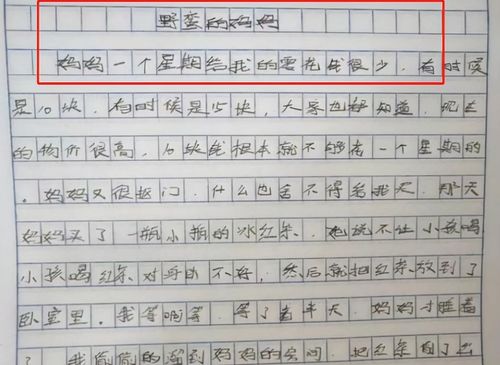 野蛮的妈妈
妈妈一个星期给我的零花钱很少，有时候
是10块，有时候是15块，大家也都知道，现在
的物价很高，10块钱根本就不够花一个星期的
。妈妈又很抠门，什么也舍不得给我买，那天
妈妈买了一瓶小瓶的冰红茶，她说不让小孩喝
小孩喝红茶对身体不好，然后就把红茶放到了
卧室里。我等啊等，等了老半天，妈妈才睡着
了，我偷偷的溜到妈妈的房间，把红茶倒了出